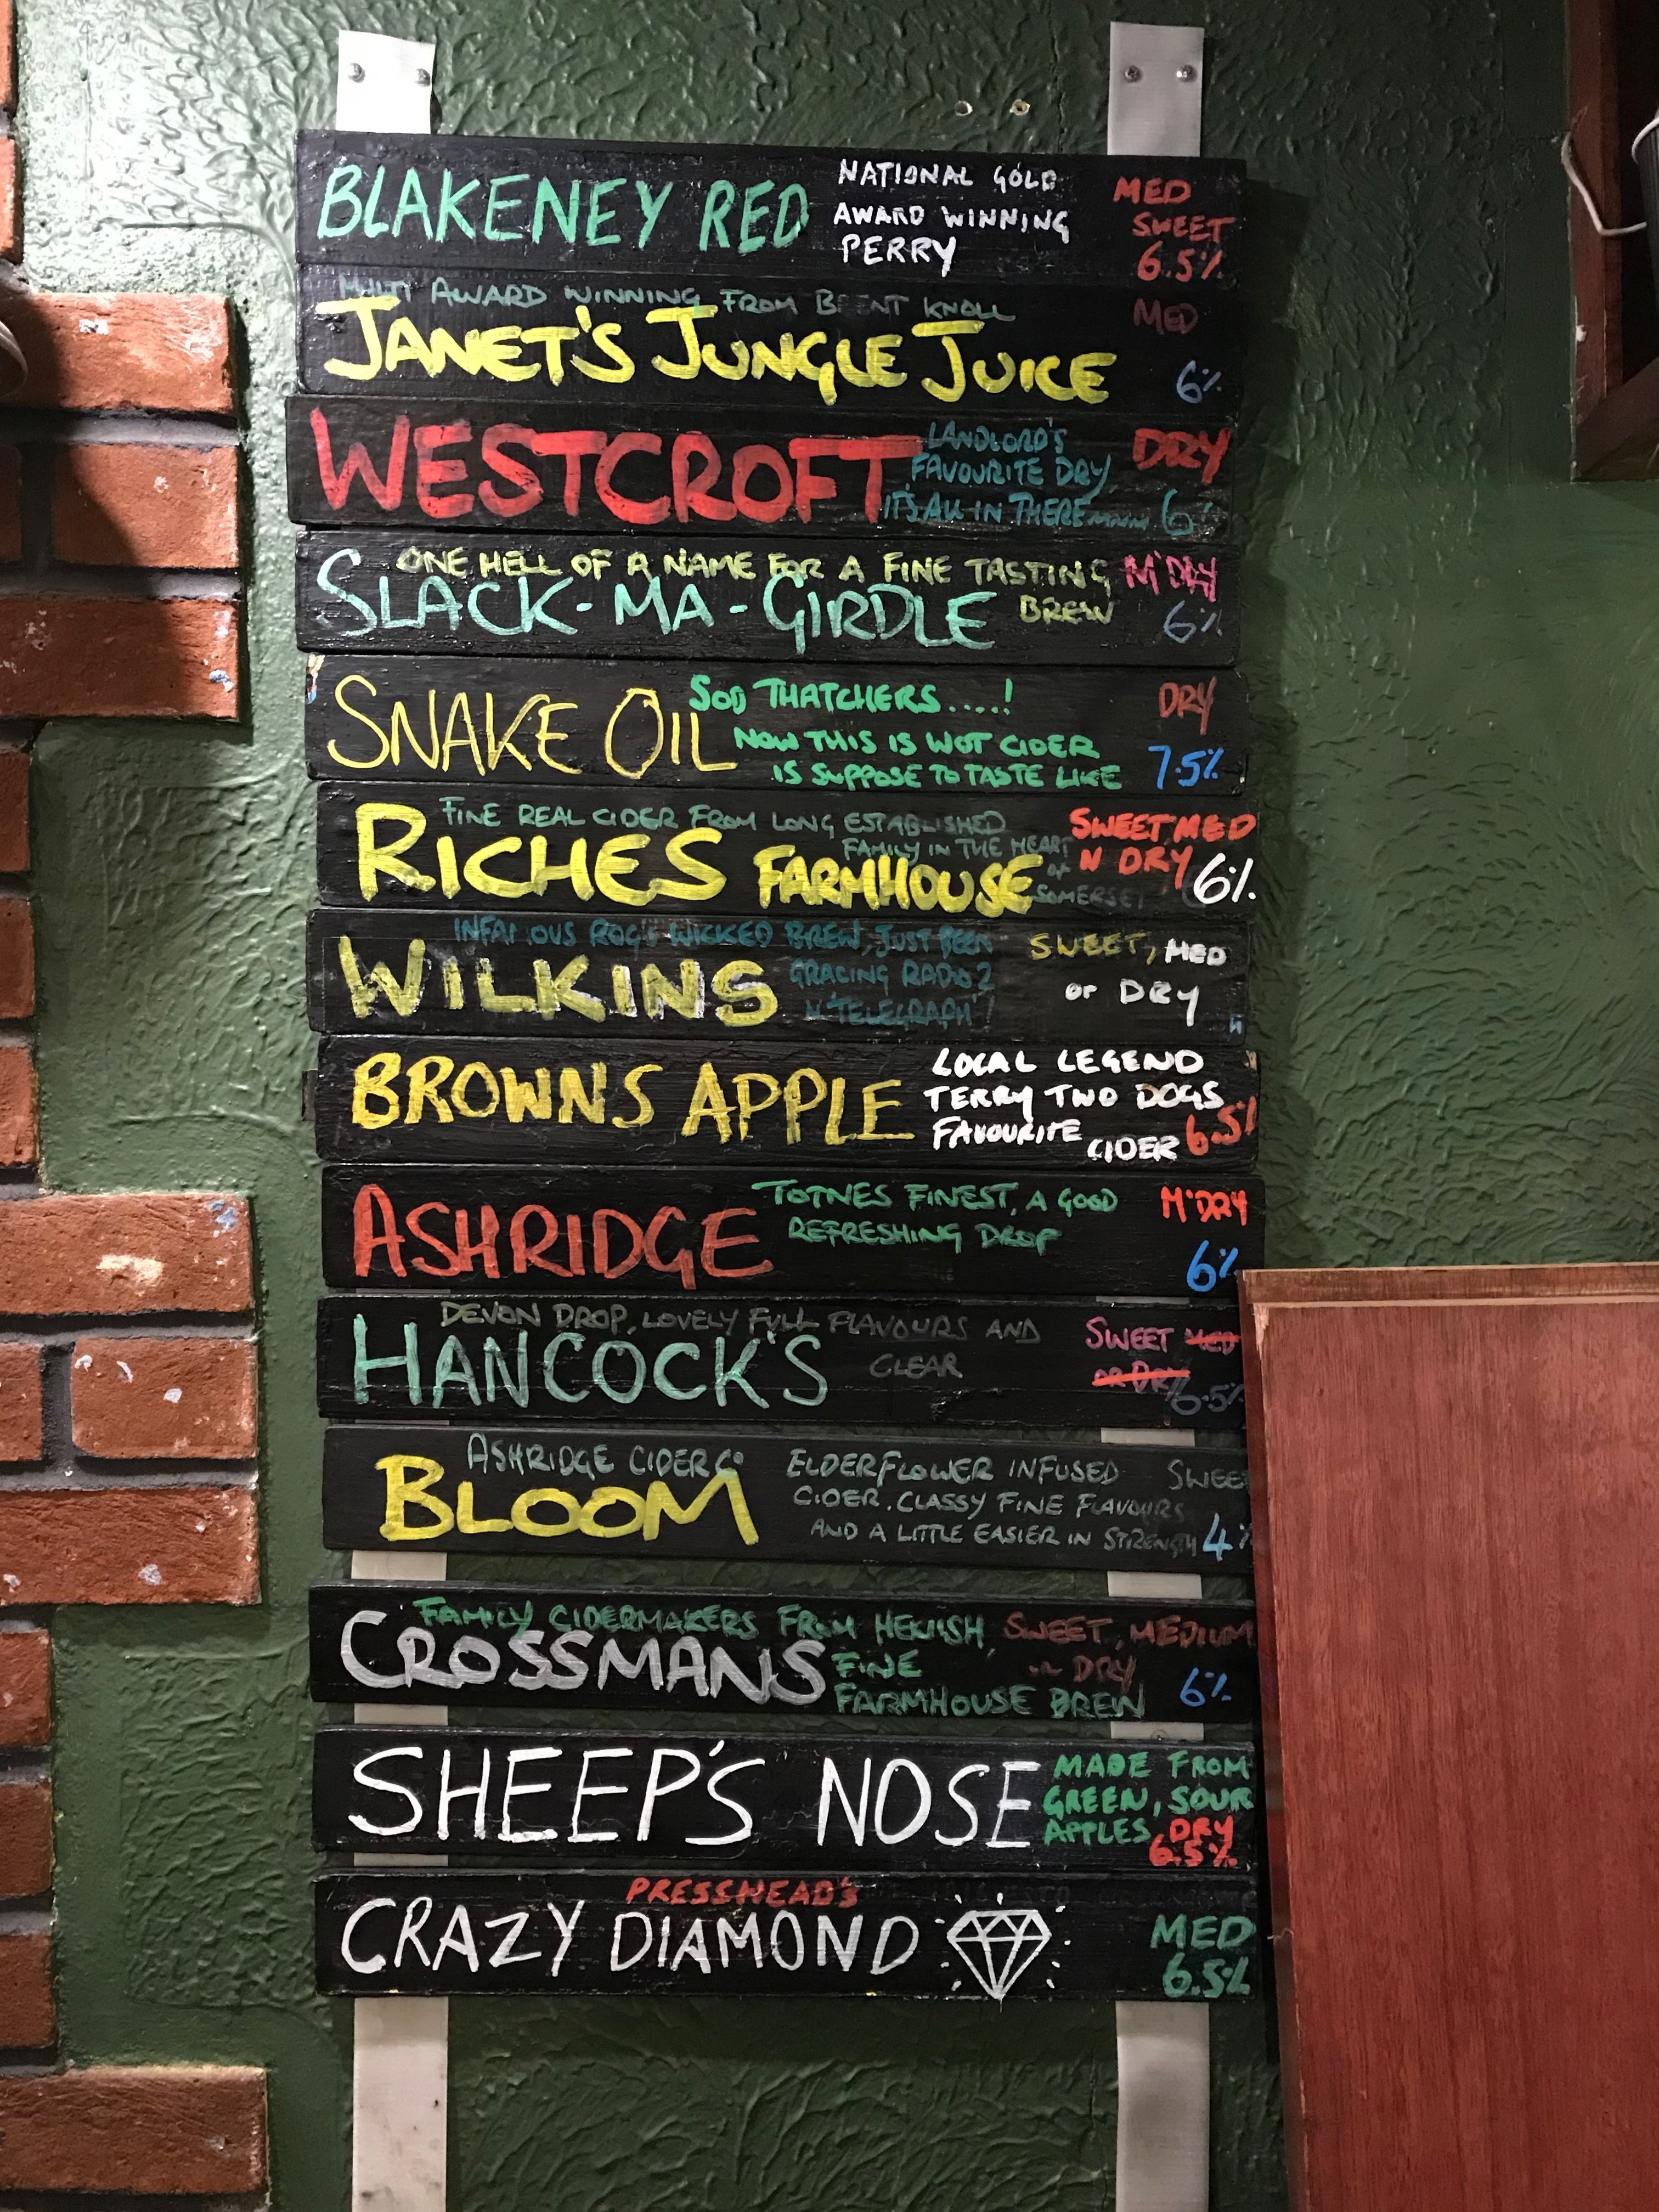 BLAKENEY RED
NATIONAL GOLD
AWARD WINNING
PERRY
MED
SWEET
6.5%
MULTI AWARD WINNING FROM BRENT KNOLL
JANET'S JUNGLE JUICE
MED
6%
WESTCROFT
LANDLORD'S
FAVOURITE DRY
IT'S ALL IN THERE
DRY
6%
ONE HELL OF A NAME FOR A FINE TASTING
SLACK-MA-GIRDLE
BREW
M'DRY
6%
SNAKE OIL
SOD THATCHERS....!
NOW THIS IS WOT CIDER
IS SUPPOSE TO TASTE LIKE
DRY
7.5%
FINE REAL CIDER FROM LONG ESTABLISHED
FAMILY IN THE HEART
OF
SOMERSET
RICHES FARMHOUSE
SWEET MED
N DRY
6%
INFAMOUS ROG'S WICKED BREW, JUST BEEN
GRACING RADIO 2
N TELEGRAPH
WILKINS
SWEET, MED
or DRY
BROWNS APPLE
LOCAL LEGEND
TERRY TWO DOGS
FAVOURITE CIDER
6.5%
ASHRIDGE
TOTNES FINEST, A GOOD
REFRESHING DROP
M'DRY
6%
DEVON DROP, LOVELY FULL FLAVOURS AND
CLEAR
HANCOCK'S
SWEET MED
OR DRY
6.5%
ASHRIDGE CIDER Co
BLOOM
ELDERFLOWER INFUSED
CIDER, CLASSY FINE FLAVOURS
AND A LITTLE EASIER IN STRENGTH
SWEET
4%
FAMILY CIDERMAKERS FROM HEWISH,
CROSSMANS
FINE
FARMHOUSE BREW
SWEET, MEDIUM
or DRY
6%
SHEEP'S NOSE
MADE FROM
GREEN, SOUR
APPLES, DRY
6.5%
PRESSHEAD'S
CRAZY DIAMOND
MED
6.5%